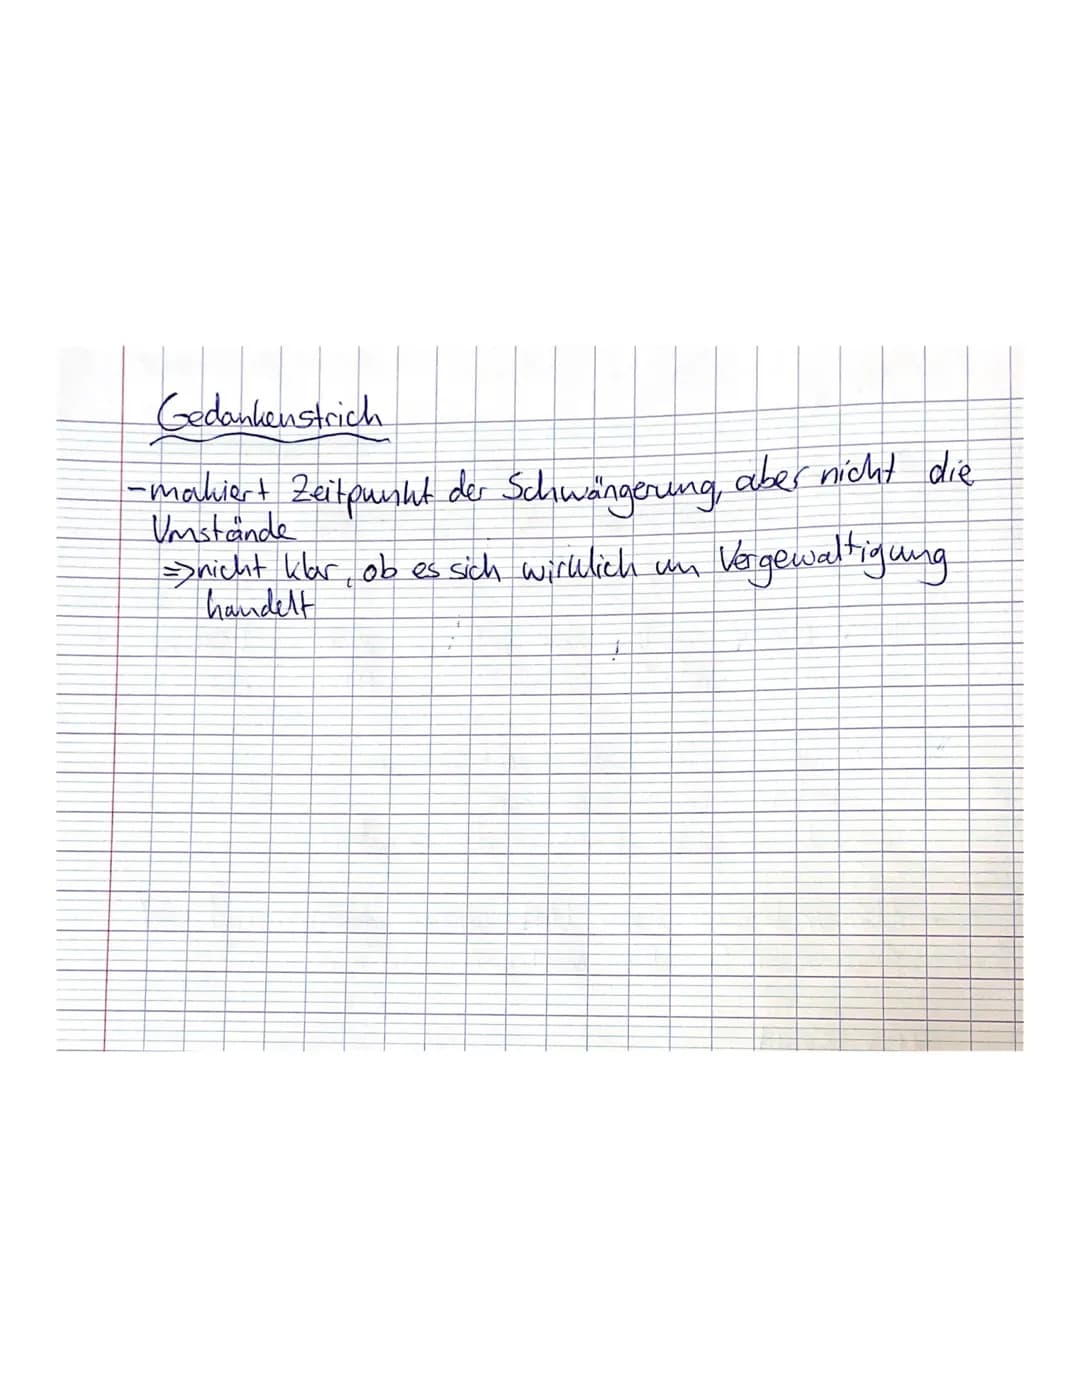 Gedankenstrich
-makiert Zeitpunkt der Schwängerung, aber nicht die
Umstände
=>nicht klar, ob es sich wirklich um Vergewaltigung
handelt